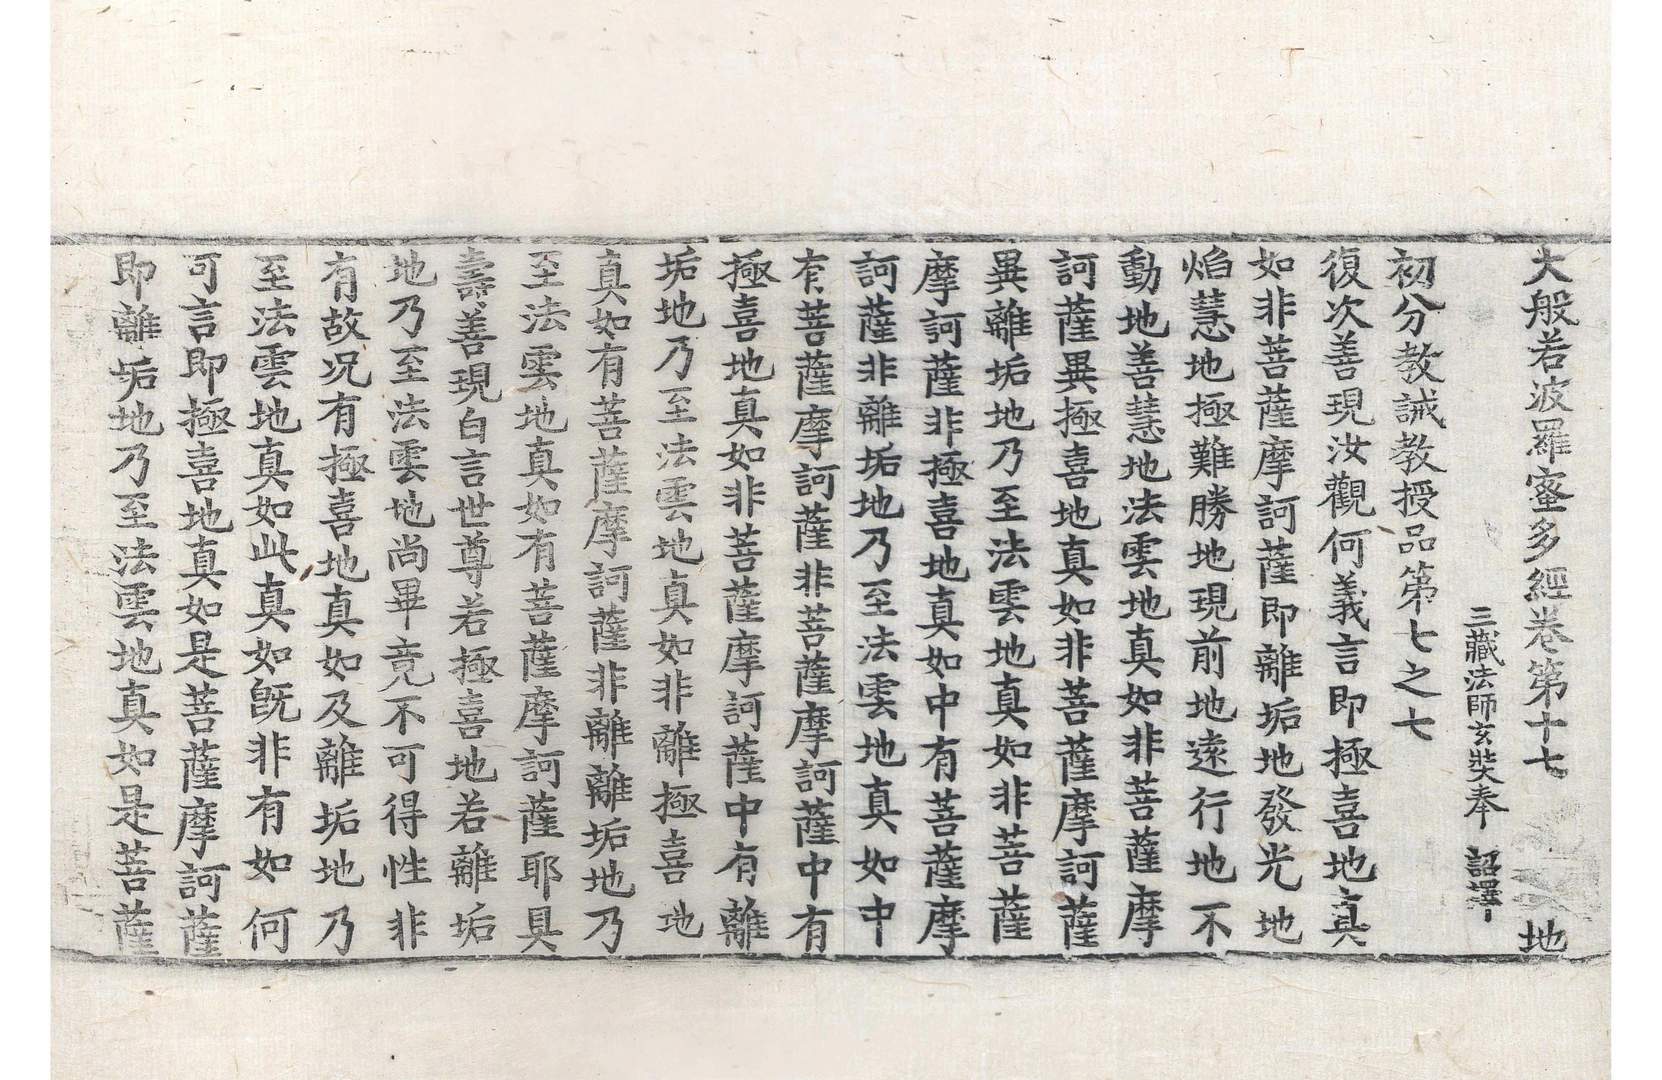 大般若波羅蜜多經卷第十七 地
三藏法師玄奘奉 詔譯
初分教誡教授品第七之七
復次善現汝觀何義言即極喜地真
如非菩薩摩訶薩即離垢地發光地
焰慧地極難勝地現前地遠行地不
動地善慧地法雲地真如非菩薩摩
訶薩異極喜地真如非菩薩摩訶薩
異離垢地乃至法雲地真如非菩薩
摩訶薩非極喜地真如中有菩薩摩
訶薩非離垢地乃至法雲地真如中
有菩薩摩訶薩非菩薩摩訶薩中有
極喜地真如非菩薩摩訶薩中有離
垢地乃至法雲地真如非離極喜地
真如有菩薩摩訶薩非離離垢地乃
至法雲地真如有菩薩摩訶薩耶具
壽善現白言世尊若極喜地若離垢
地乃至法雲地尚畢竟不可得性非
有故況有極喜地真如及離垢地乃
至法雲地真如此真如既非有如何
可言即極喜地真如是菩薩摩訶薩
即離垢地乃至法雲地真如是菩薩